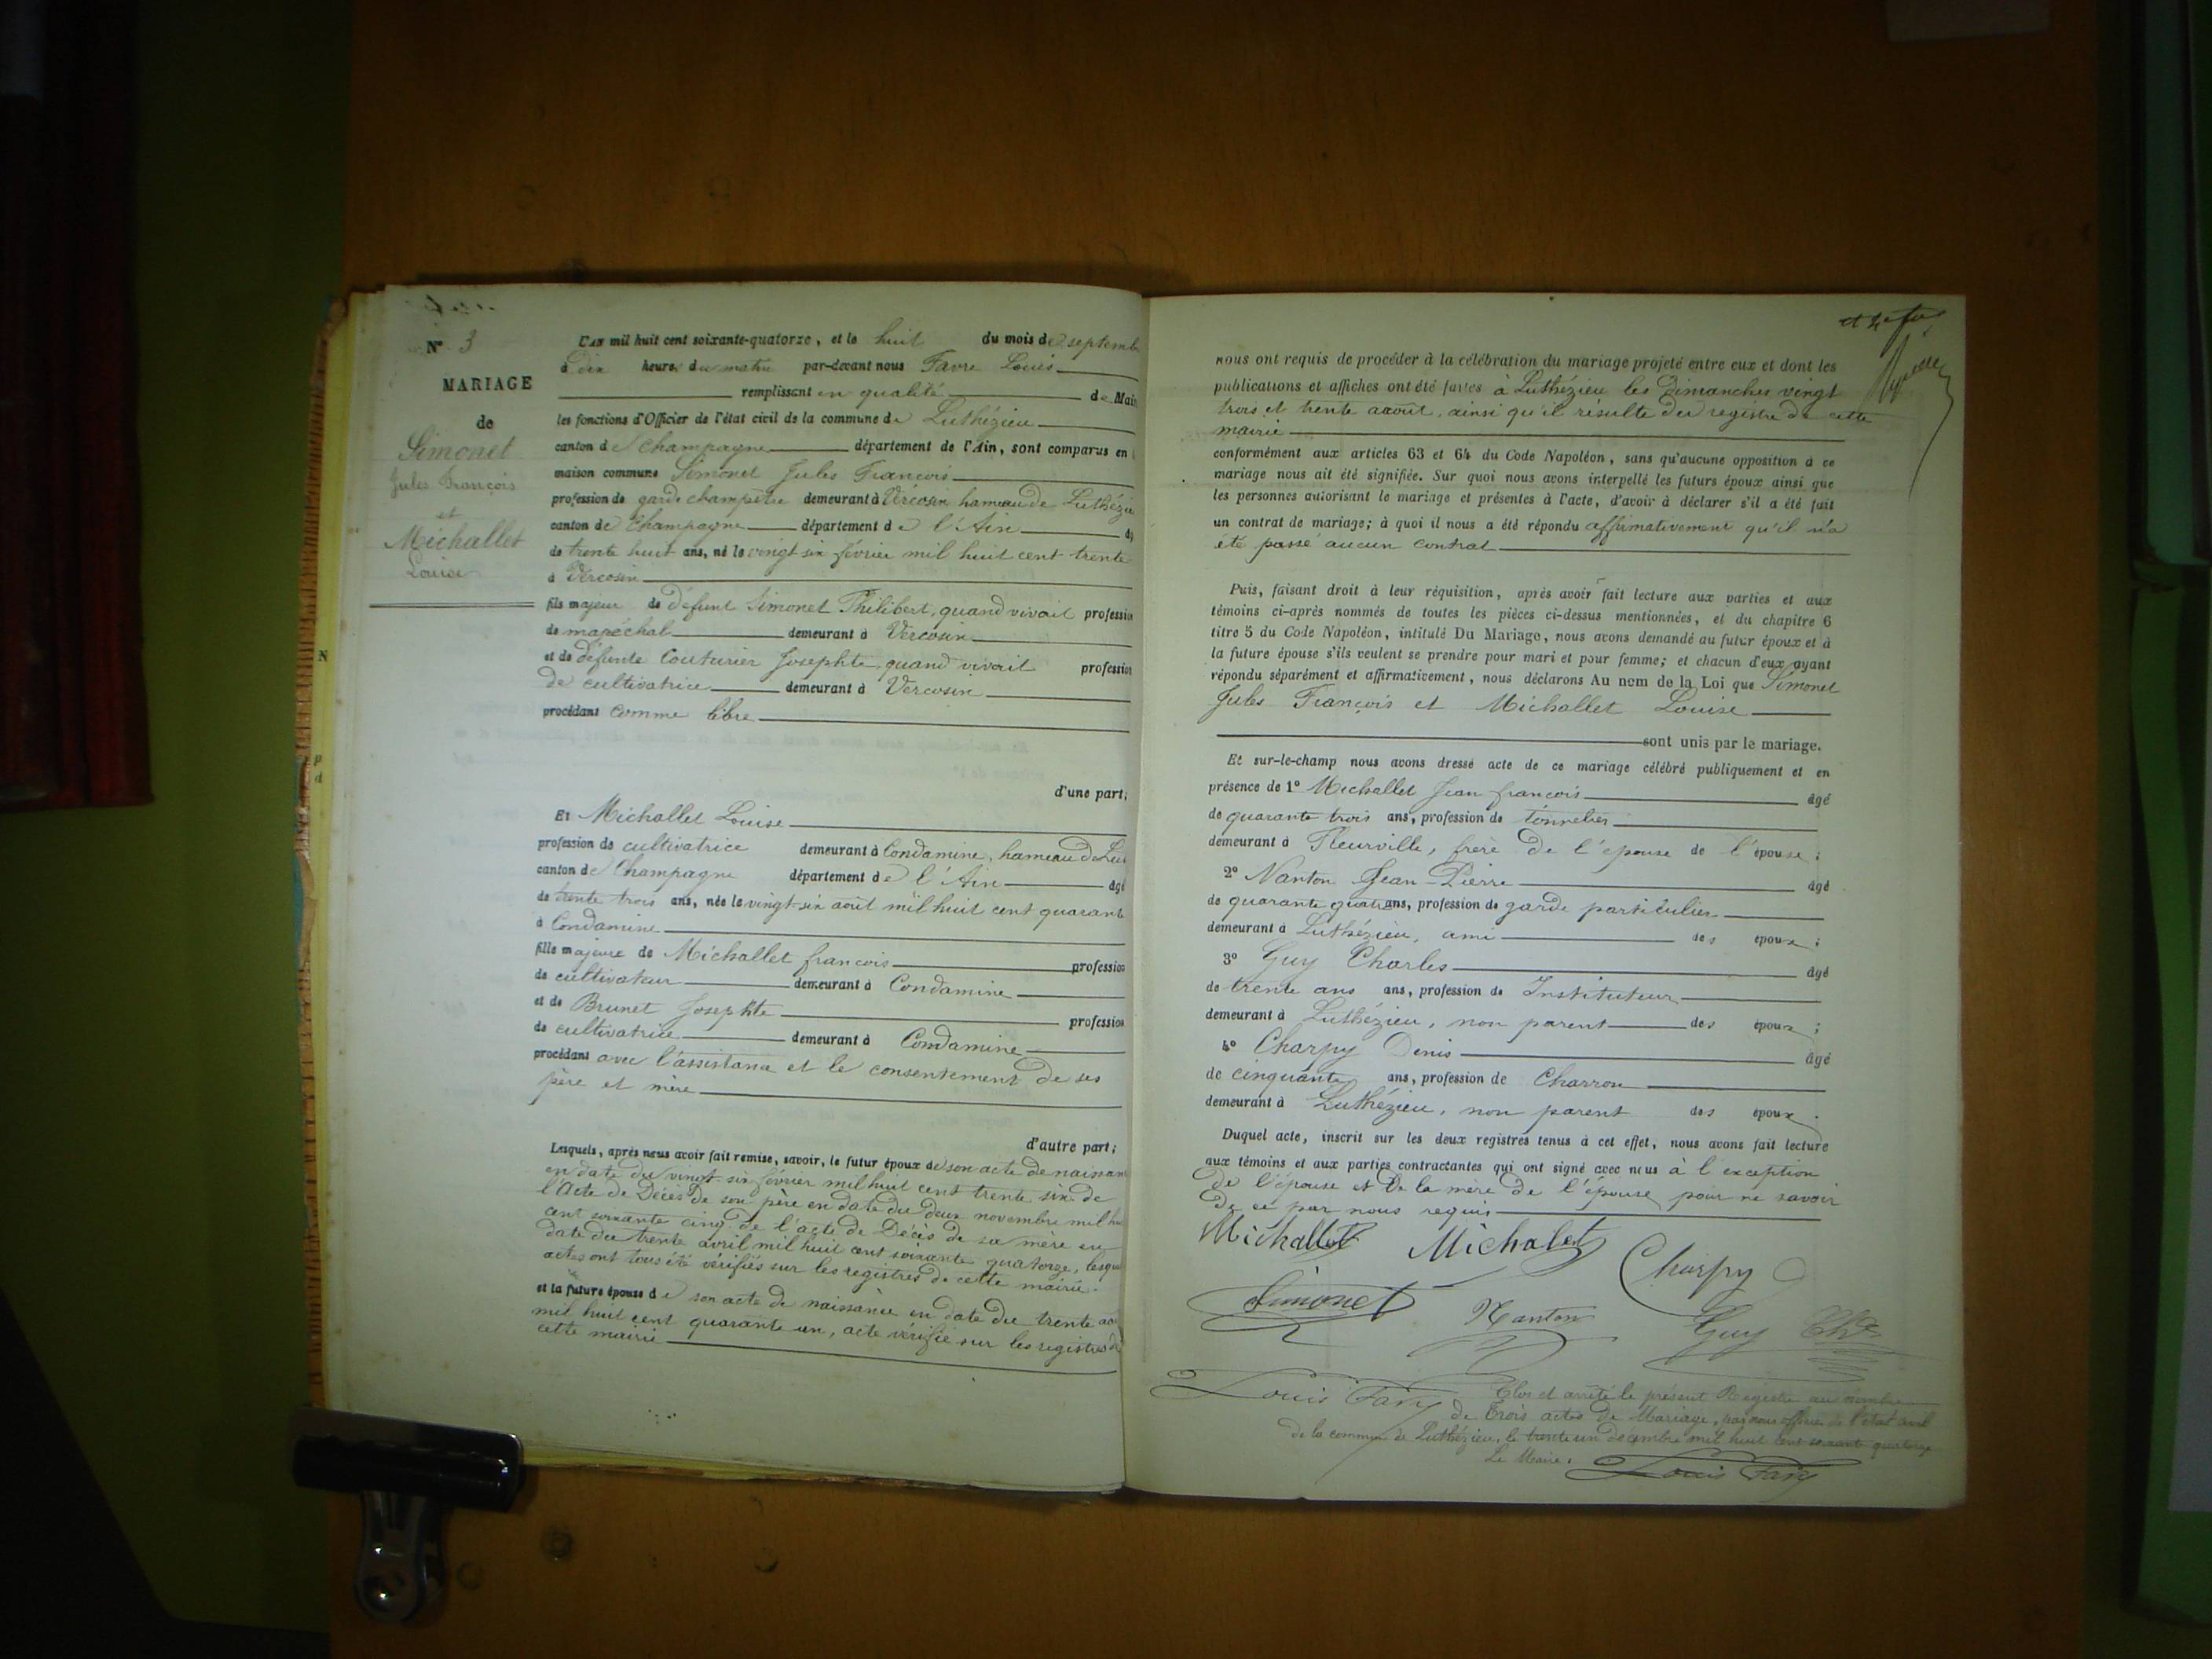 N° 3
MARIAGE
de
Simonet
Jules François
et
Michallet
Louise
L'AN mil huit cent soixante-quatorze, et le huit du mois de septemb
à dix heures du matin par-devant nous Favre Louis
remplissant en qualité de Mai
les fonctions d'Officier de l'état civil de la commune de Luthézieu
canton de Champagne département de l'Ain, sont comparus en
maison commune Simonet Jules François
profession de garde champêtre demeurant à Vércosin hameau de Luthézie
canton de Champagne département de l'Ain
de trente huit ans, né le vingt six février mil huit cent trente
à Vércosin
fils majeur de défunt Simonet Philibert, quand vivait profession
de maréchal demeurant à Vercosin
et de défunte Couturier Josephte, quand vivait profession
de cultivatrice demeurant à Vercosin
procédant comme libre
d'une part;
Et Michallet Louise
profession de cultivatrice demeurant à Condamine, hameau de Lu
canton de Champagne département de l'Ain âgé
de trente trois ans, née le vingt-six août mil huit cent quarant
à Condamine
fille majeure de Michallet francois profession
de cultivateur demeurant à Condamine
et de Brunet Josephte profession
de cultivatrice demeurant à Condamine
procédant avec l'assistance et le consentement de ses
père et mère
d'autre part;
Lesquels, après nous avoir fait remise, savoir, le futur époux de son acte de naissan
en date du vingt-six février mil huit cent trente six. de
l'Acte de Décès de son père en date du deux novembre mil hu
cent soixante cinq. de l'acte de Décès de sa mère en
date du trente avril mil huit cent soixante quatorze, lesqu
actes ont tous été vérifiés sur les registres de cette mairie.
et la future épouse de son acte de naissance en date du trente ao
mil huit cent quarante un, acte vérifié sur les registres d
cette mairie
nous ont requis de procéder à la célébration du mariage projeté entre eux et dont les
publications et affiches ont été faites à Luthézieu les dimanches vingt
trois et trente aoout, ainsi qu'il résulte du registre de cette
mairie
conformément aux articles 63 et 64 du Code Napoléon, sans qu'aucune opposition à ce
mariage nous ait été signifiée. Sur quoi nous avons interpellé les futurs époux ainsi que
les personnes autorisant le mariage et présentes à l'acte, d'avoir à déclarer s'il a été fait
un contrat de mariage; à quoi il nous a été répondu affirmativement qu'il n'a
été passé aucun contrat
Puis, faisant droit à leur réquisition, après avoir fait lecture aux parties et aux
témoins ci-après nommés de toutes les pièces ci-dessus mentionnées, et du chapitre 6
titre 5 du Code Napoléon, intitulé Du Mariage, nous avons demandé au futur époux et à
la future épouse s'ils veulent se prendre pour mari et pour femme; et chacun d'eux ayant
répondu séparément et affirmativement, nous déclarons Au nom de la Loi que Simonet
Jules François et Michallet Louise
sont unis par le mariage.
Et sur-le-champ nous avons dressé acte de ce mariage célébré publiquement et en
présence de 1° Michallet Jean françois âgé
de quarante trois ans, profession de tonnelier
demeurant à Fleurville, frère de l'épouse de l'épouse;
2° Nanton Jean-Pierre âgé
de quarante quatre ans, profession de garde particulier
demeurant à Luthézieu, ami des époux;
3° Guy Charles âgé
de trente ans ans, profession de Instituteur
demeurant à Luthézieu, non parent des époux;
4° Charpy Denis âgé
de cinquante ans, profession de Charron
demeurant à Luthézieu, non parent des époux.
Duquel acte, inscrit sur les deux registres tenus à cet effet, nous avons fait lecture
aux témoins et aux parties contractantes qui ont signé avec nous à l'exception
de l'épouse et de la mère de l'épouse pour ne savoir
de ce par nous requis
Michallet Michalet Charpy
Simonet Nanton Guy Ch
Louis Favre
Clos et arrêté le présent Registre au nombre
de trois actes de Mariage, par nous officier de l'état civil
de la commune de Luthézieu, le trente un décembre mil huit cent soixante quatorze
Le Maire.
Louis Favre